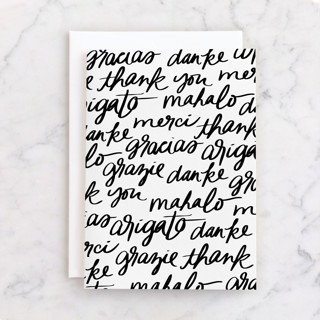 gracias danke
thank you mer
igato mahalo d
anke merci thank
lo gracias ariga
grazie danke gra
k you mahalo m
as arigato danke
rci grazie thank
ke mahalo gracias